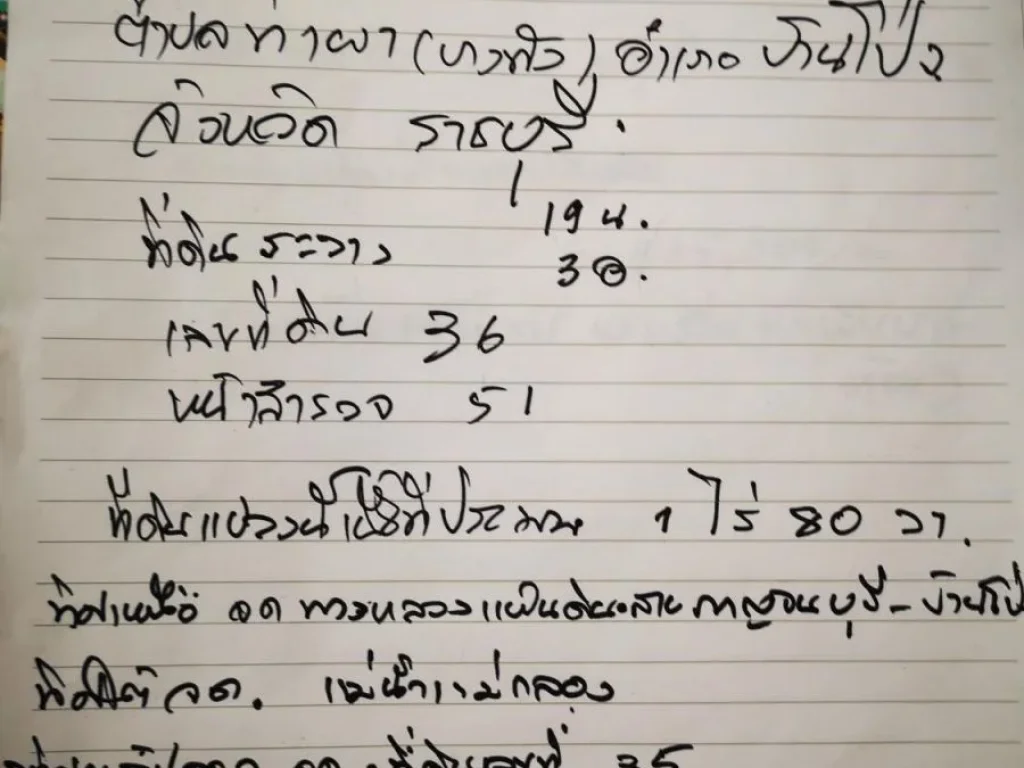 ตำบล ท่าผา (บางพัง) อำเภอ บ้านโป่ง
จังหวัด ราชบุรี.
19 น.
ที่ดิน ระวาง
3 อ.
เลขที่ดิน 36
หน้าสำรวจ 51
ที่ดินแปลงนี้เนื้อที่ประมาณ 1 ไร่ 80 วา.
ทิศเหนือ จด ทางหลวงแผ่นดินสาย กาญจนบุรี - บ้านโป่
ทิศใต้ จด. แม่น้ำแม่กลอง
จด ที่ดินเลขที่ 35